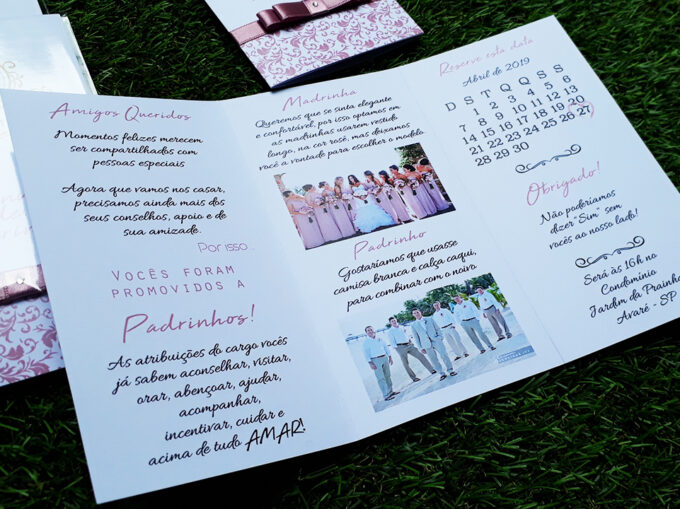 Amigos Queridos
Momentos felizes merecem
ser compartilhados com
pessoas especiais
Agora que vamos nos casar,
precisamos ainda mais dos
seus conselhos, apoio e de
sua amizade.
Por isso...
VOCÊS FORAM
PROMOVIDOS A
Padrinhos!
As atribuições do cargo vocês
já sabem aconselhar, visitar,
orar, abençoar, ajudar,
acompanhar,
incentivar, cuidar e
acima de tudo AMAR!
Madrinha
Queremos que se sinta elegante
e confortável, por isso optamos em
as madrinhas usarem vestido
longo, na cor rosé, mas deixamos
você a vontade para escolher o modelo.
Padrinho
Gostaríamos que usasse
camisa branca e calça caqui,
para combinar com o noivo.
Reserve esta data
Abril de 2019
D S T Q Q S S
1 2 3 4 5 6
7 8 9 10 11 12 13
14 15 16 17 18 19 20
21 22 23 24 25 26 27
28 29 30
Obrigado!
Não poderíamos
dizer "Sim" sem
vocês ao nosso lado!
Será às 16h no
Condomínio
Jardim da Prainha
Avaré - SP